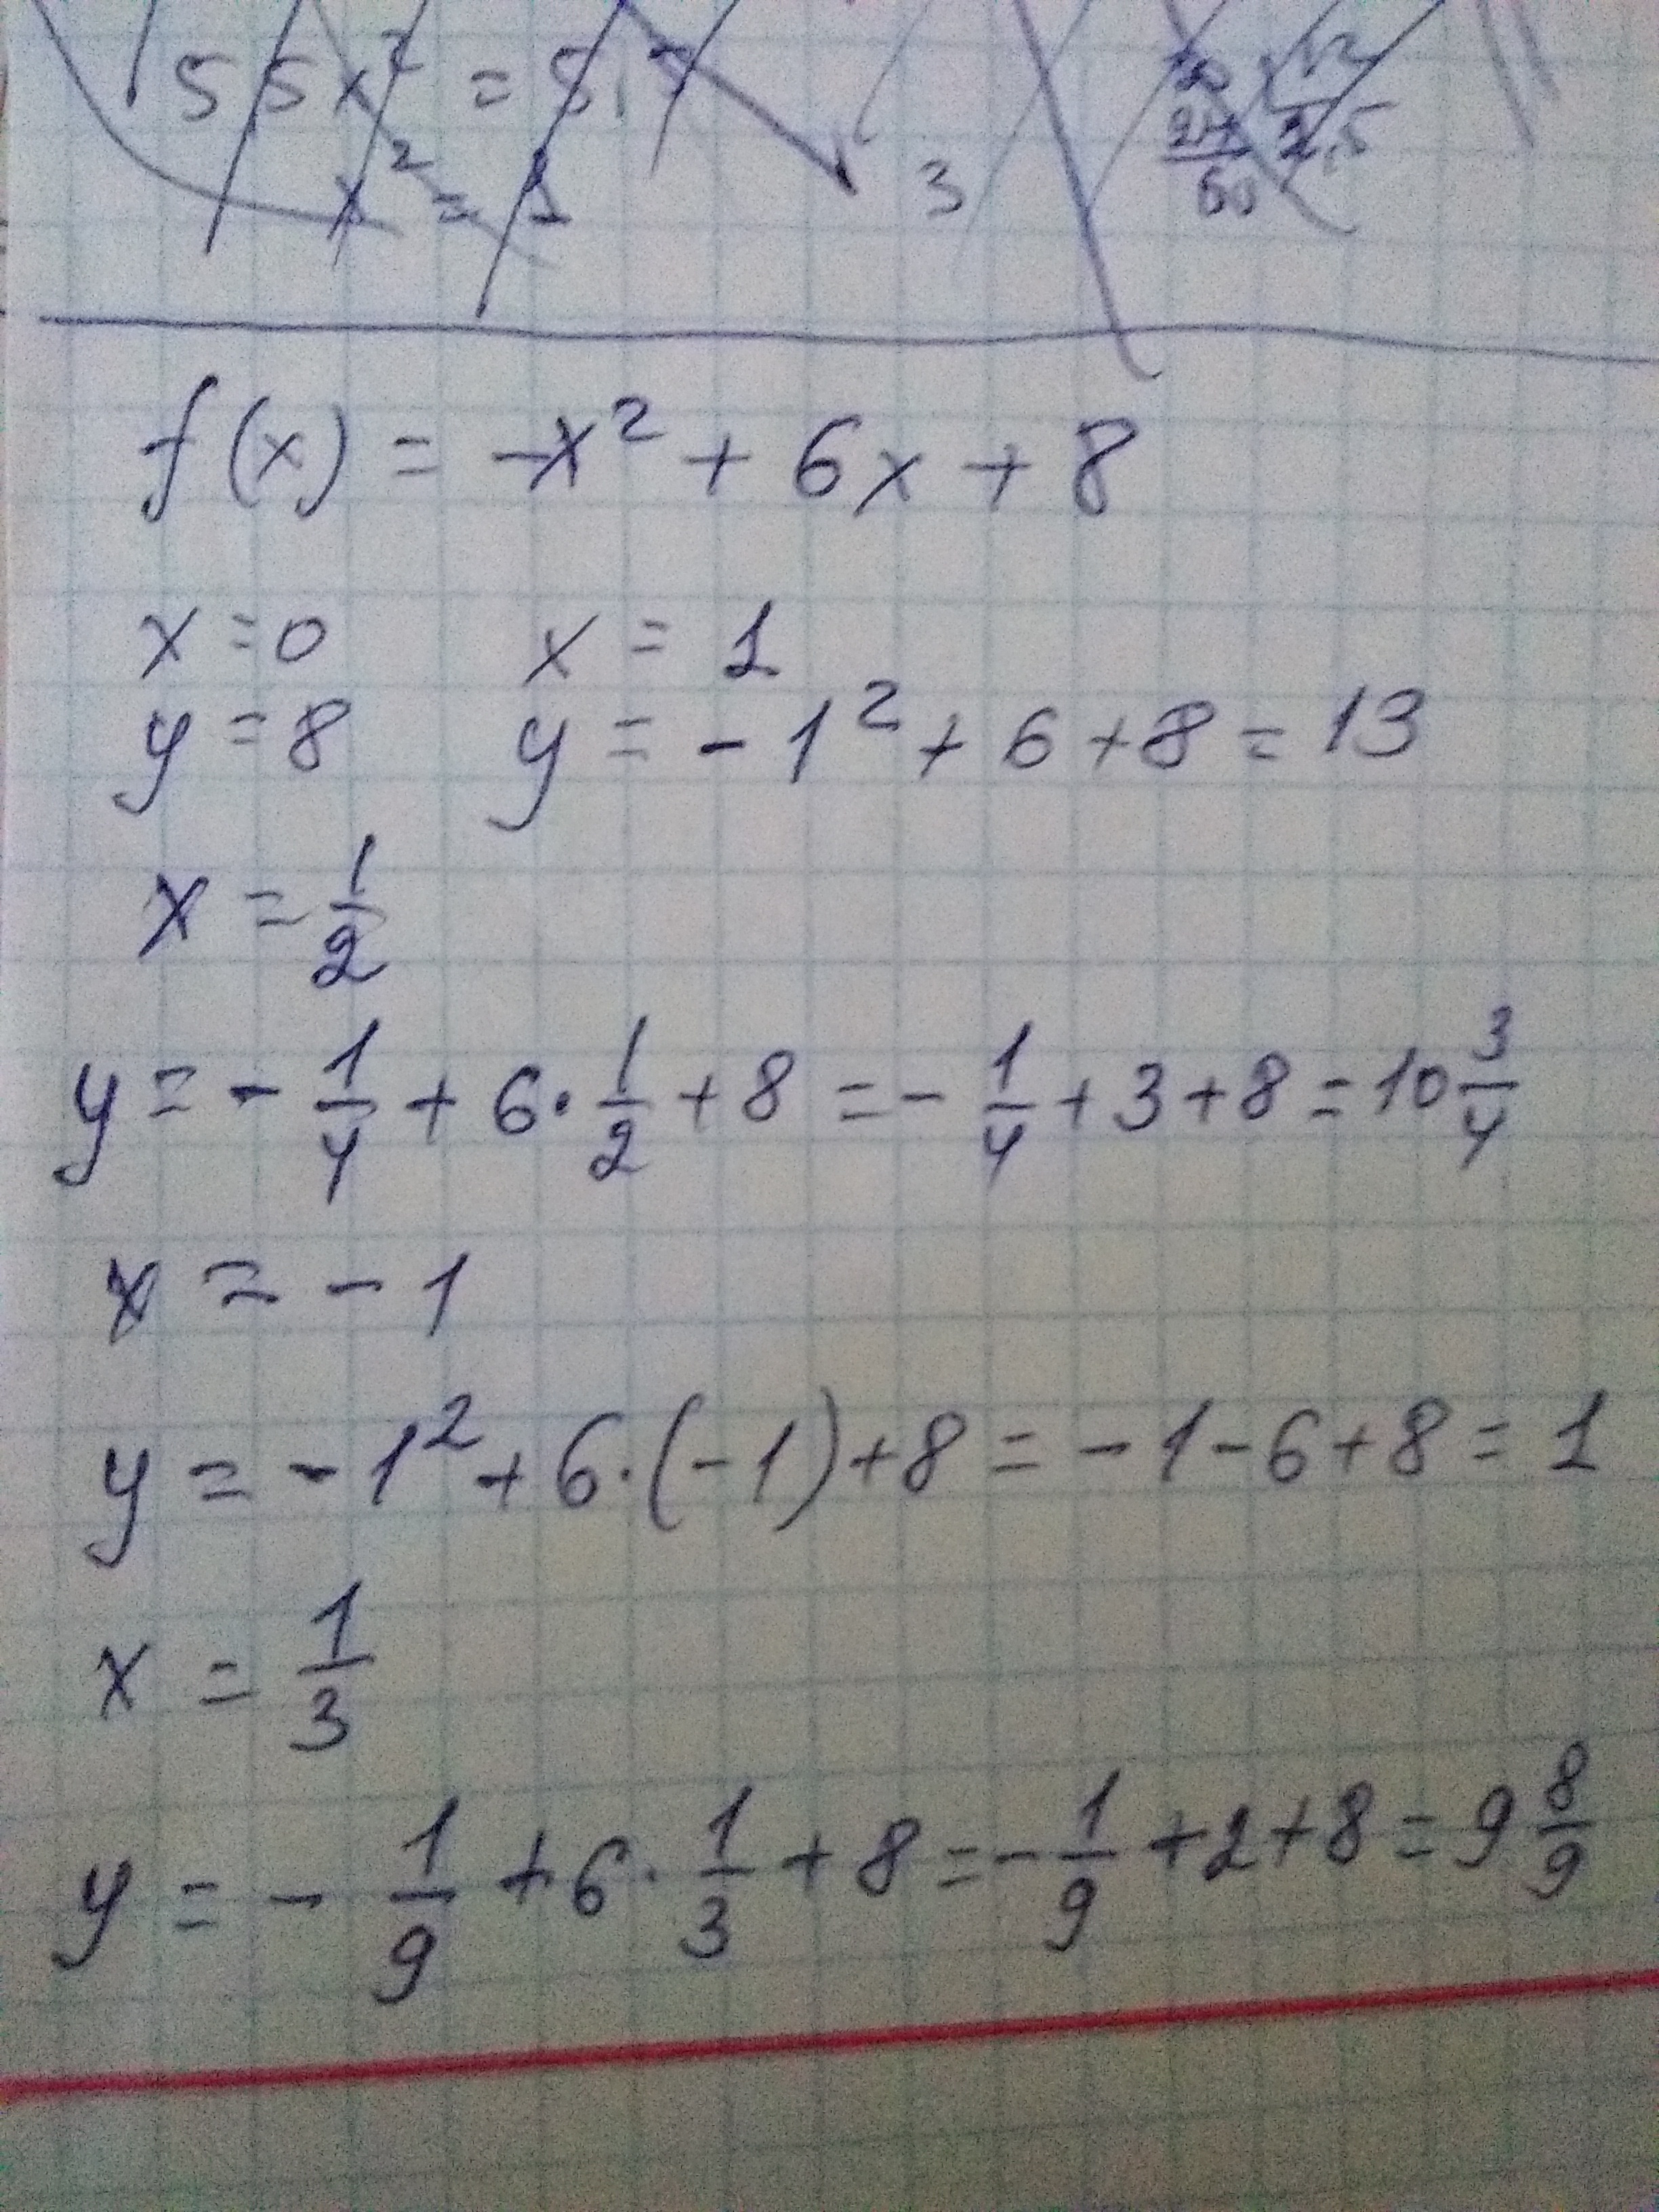 x² =
3
f(x) = -x² + 6x + 8
x = 0 x = 1
y = 8 y = - 1² + 6 + 8 = 13
x = 1/2
y = - 1/4 + 6 · 1/2 + 8 = - 1/4 + 3 + 8 = 10 3/4
x = - 1
y = - 1² + 6 · (-1) + 8 = - 1 - 6 + 8 = 1
x = 1/3
y = - 1/9 + 6 · 1/3 + 8 = - 1/9 + 2 + 8 = 9 8/9